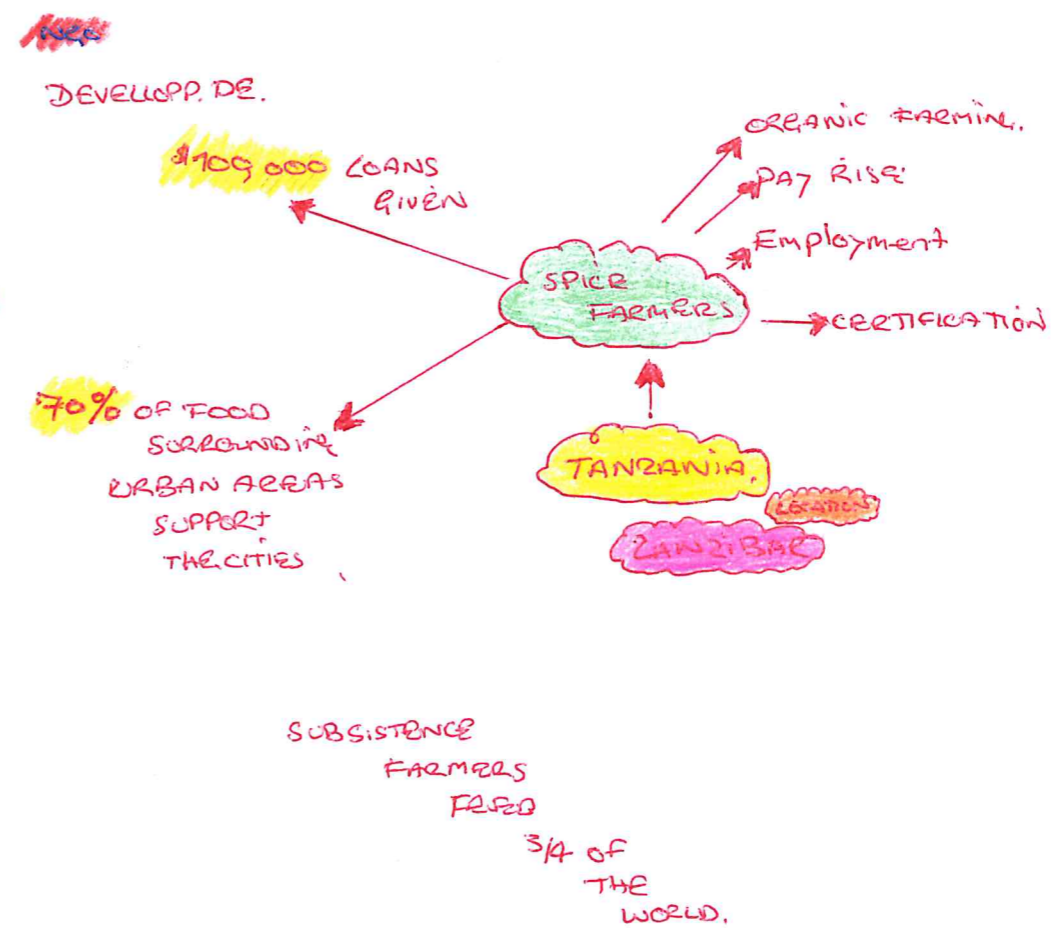 DEVELLOPP. DE.
$109,000 LOANS
GIVEN
ORGANIC FARMING.
PAY RISE
Employment
CERTIFICATION
SPICE
FARMERS
70% OF FOOD
SURROUNDING
URBAN AREAS
SUPPORT
THE CITIES
TANZANIA.
LOCATION
ZANZIBAR
SUBSISTENCE
FARMERS
FEED
3/4 OF
THE
WORLD.